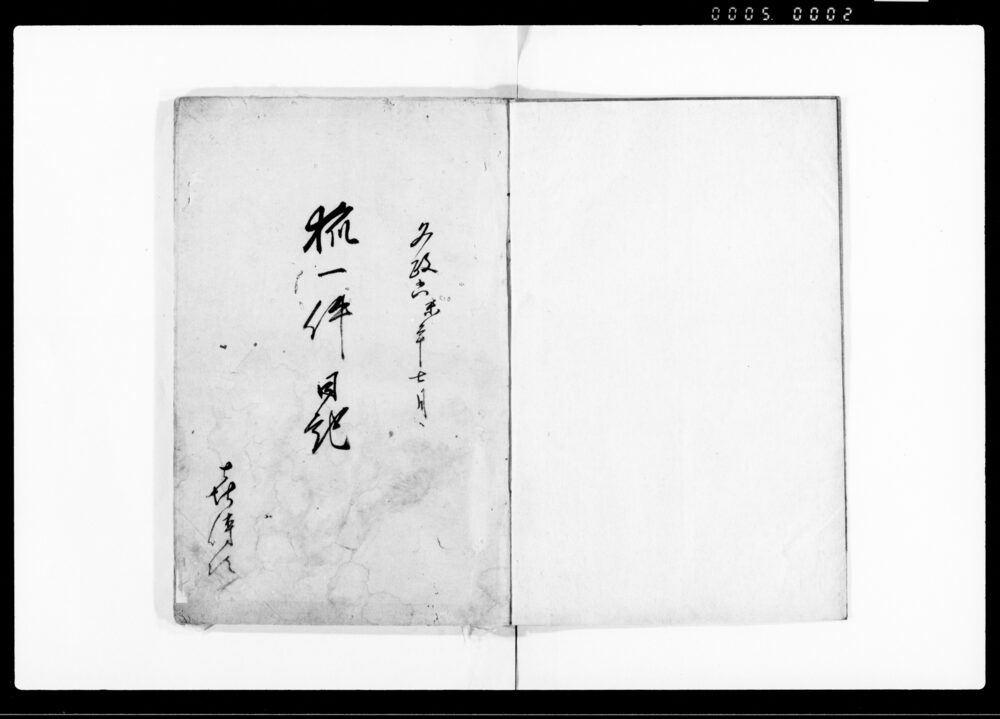 0005. 0002
文政六未年七月
一件日記
喜傳次